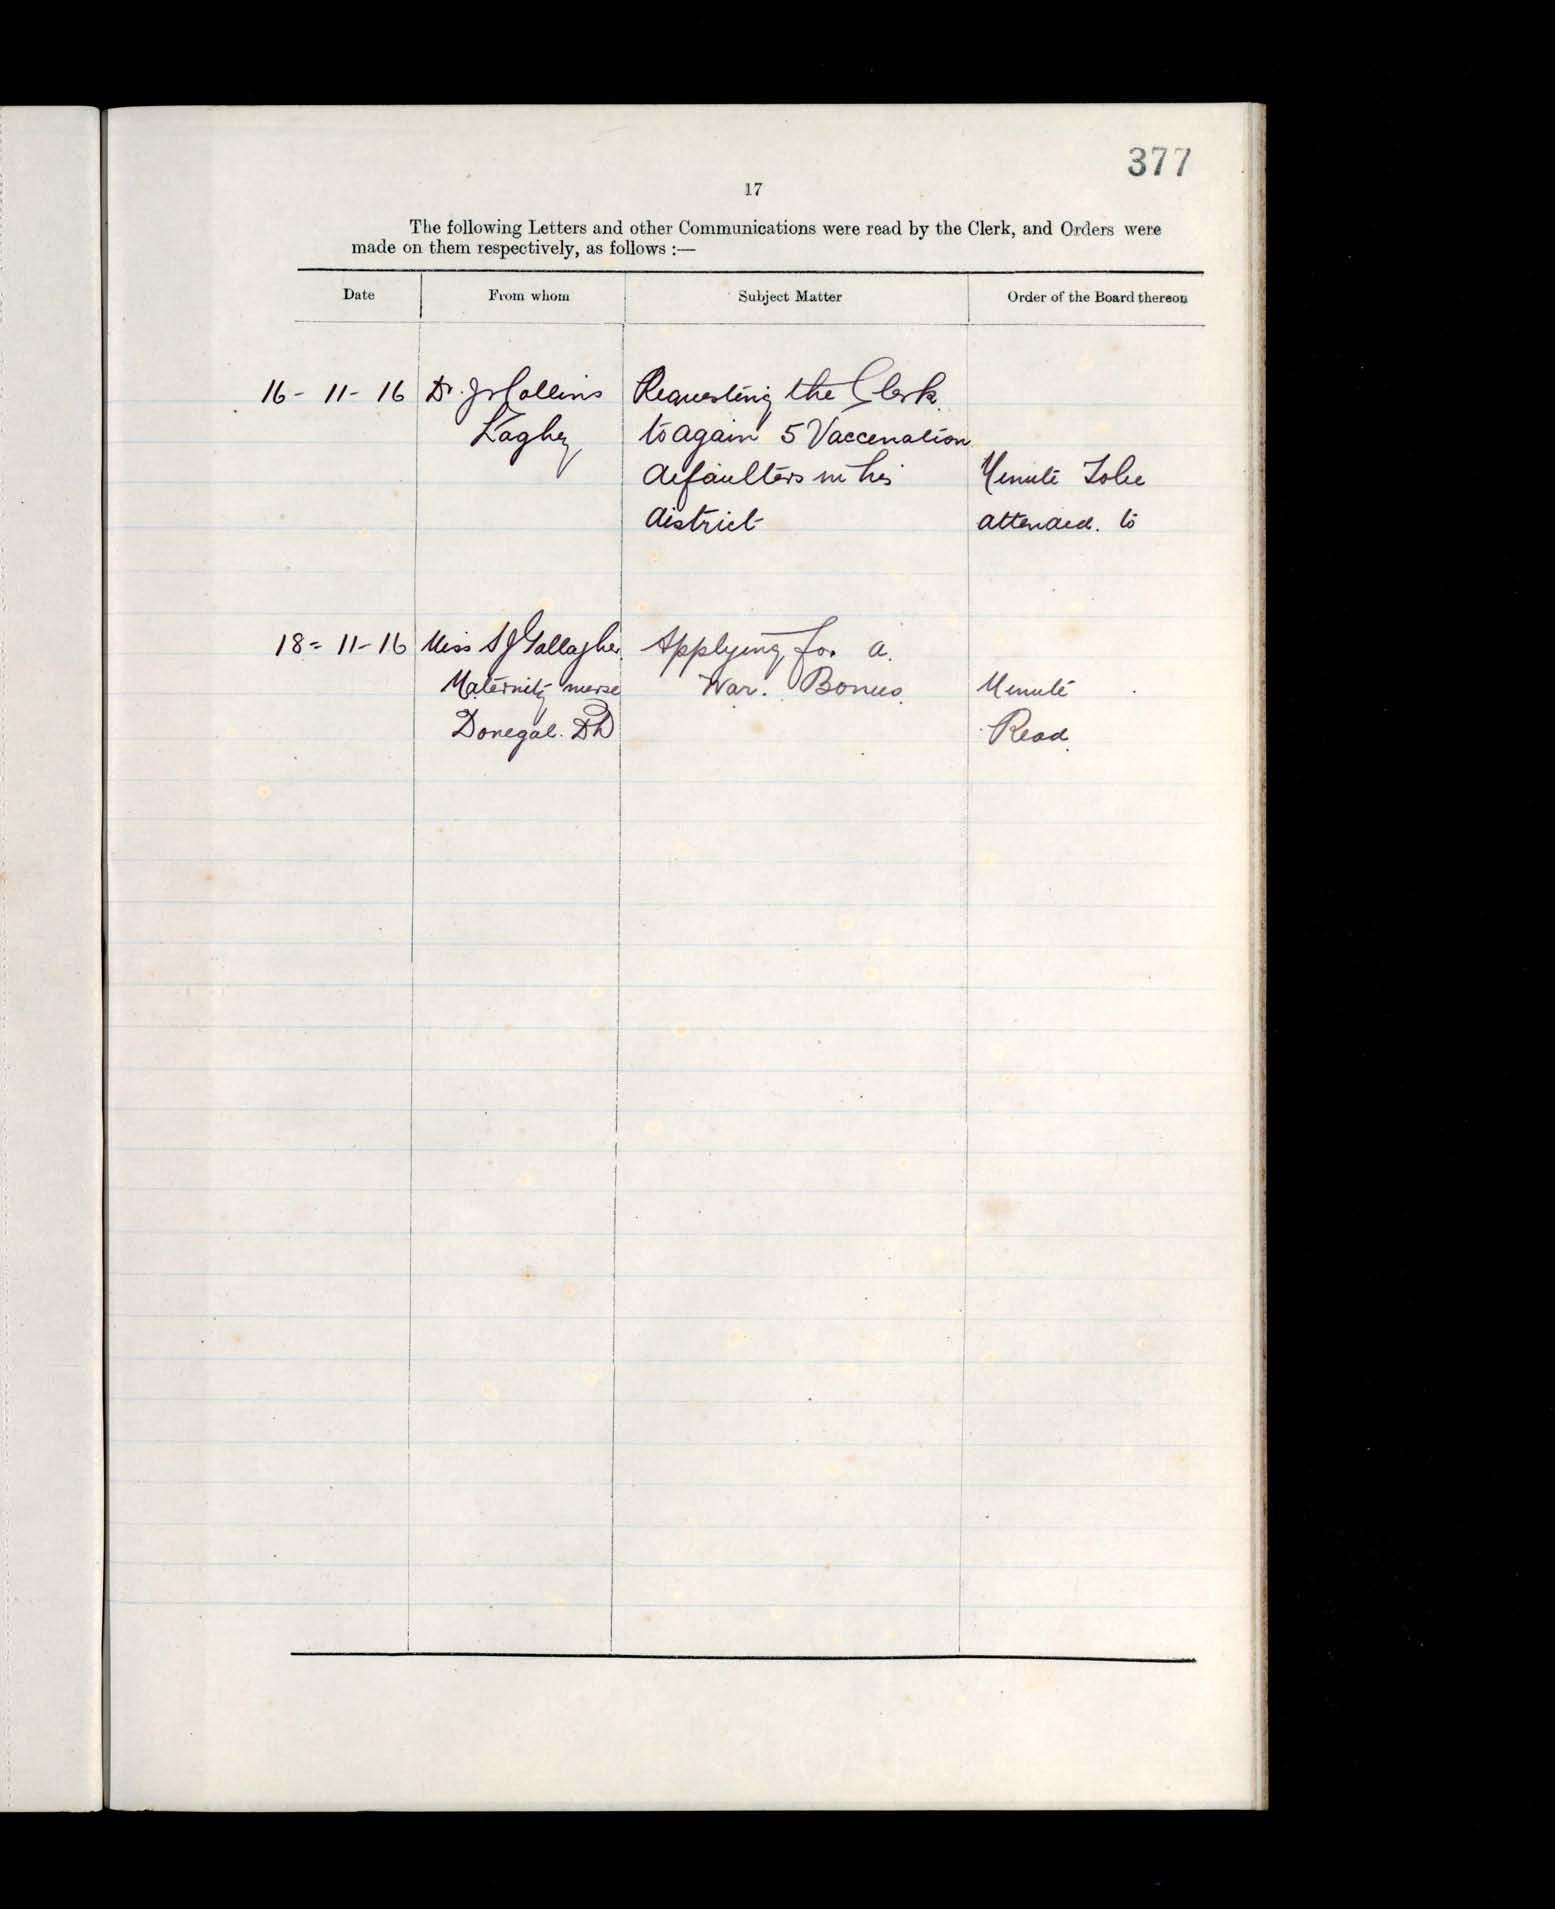 377
17
The following Letters and other Communications were read by the Clerk, and Orders were
made on them respectively, as follows :—
Date From whom Subject Matter Order of the Board thereon
16 - 11 - 16 Dr. Collins Requesting the Clerk
Laghey to again 5 Vaccenation
defaulters in his Minute To be
district attended to
18 = 11 - 16 Miss S J Gallagher Applying for a
Maternity nurse War Bonus Minute
Donegal. DD Read